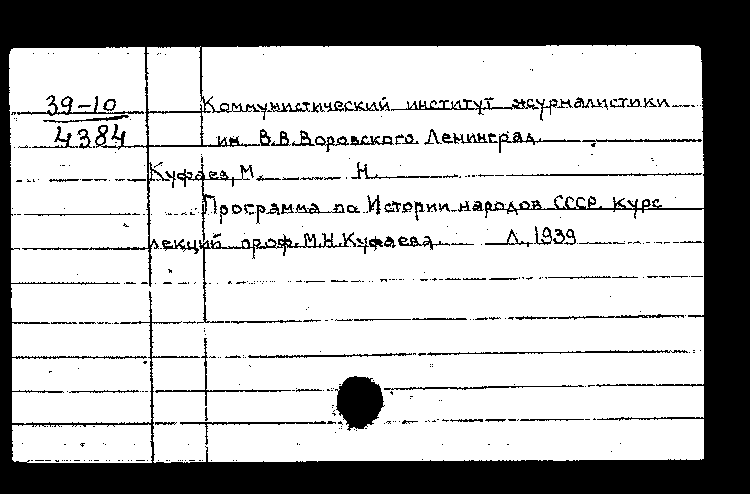 39-10
4384
Коммунистический институт журналистики
им. В.В.Воровского. Ленинград.
Куфаев, М. Н.
Программа по Истории народов СССР. Курс
лекций проф. М.Н.Куфаева. Л., 1939